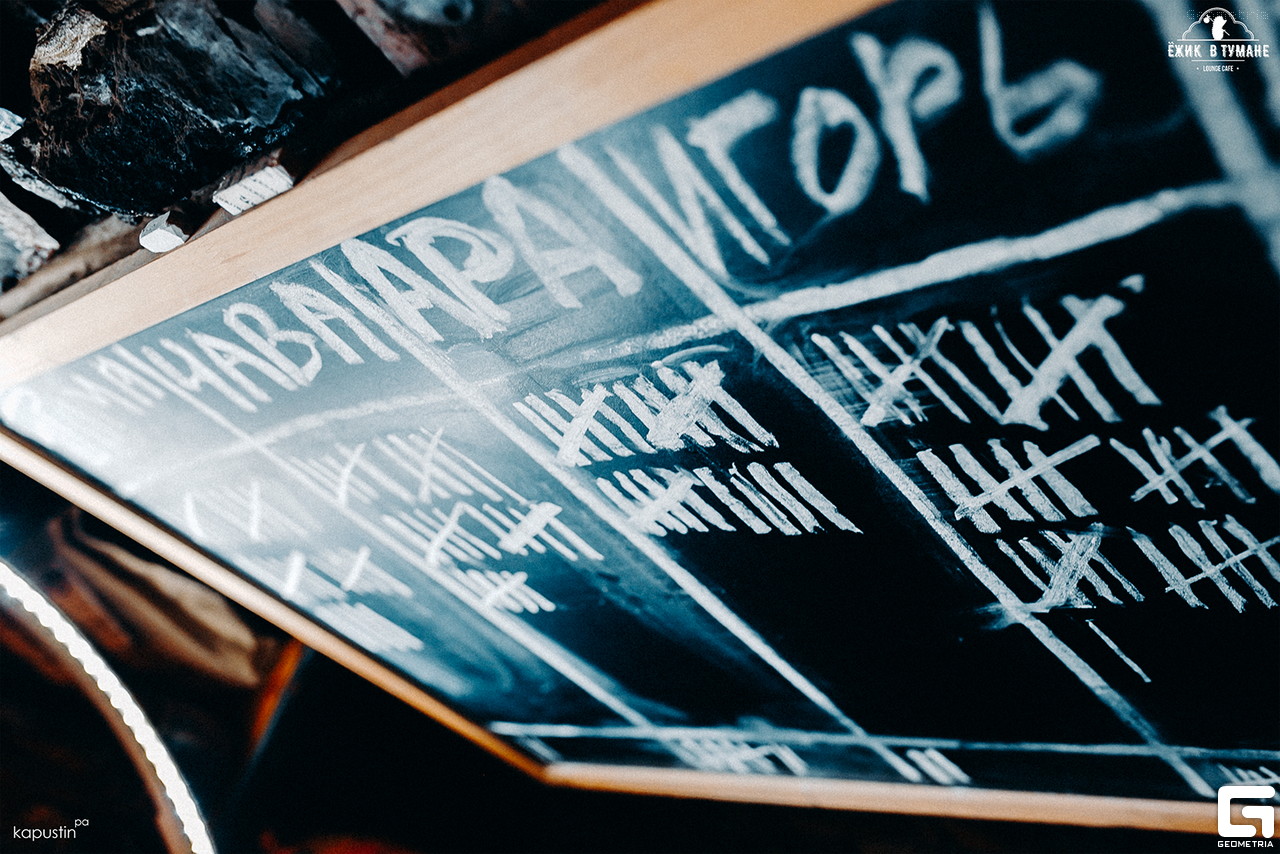 ЧАВА АРА ИГОРЬ
ЁЖИК В ТУМАНЕ
• LOUNGE CAFE •
kapustin pa
GEOMETRIA